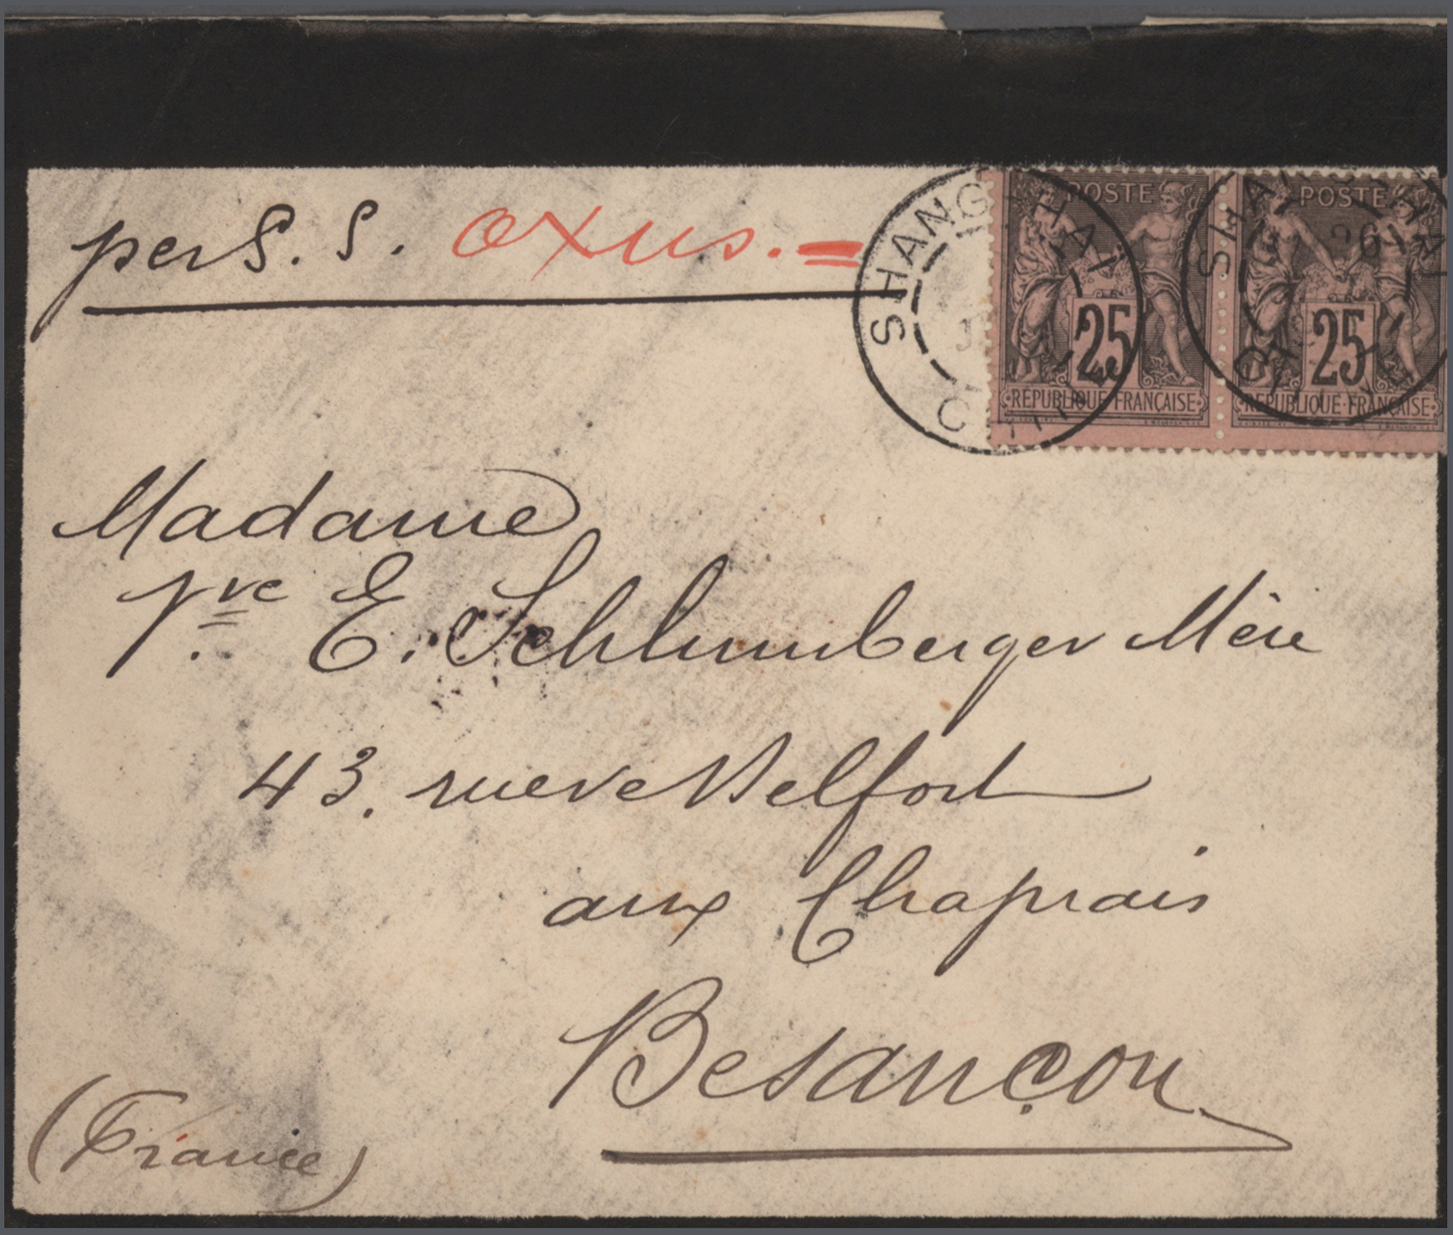 per S. S. Oxus. =
SHANG-HAI
CHINE
POSTE
25
RÉPUBLIQUE FRANÇAISE
SHANG-HAI
96
CHINE
POSTE
25
RÉPUBLIQUE FRANÇAISE
Madame
Vve E. Schlumberger Mère
43. rue de Belfort
aux Chaprais
Besançon
(France)